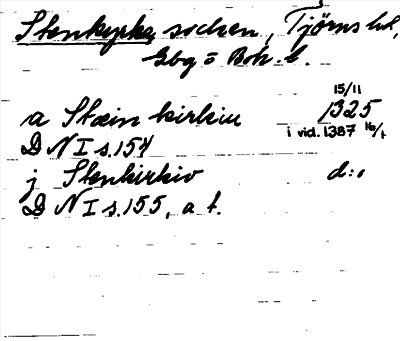 Stenkyrka socken, Tjörns hd,
Gbg o Boh. l.
15/11
a Stæin kirkiu 1325
i vid. 1387 16/1
D N I s. 154
j Stenkirkio d:o
D N I s. 155, a t.